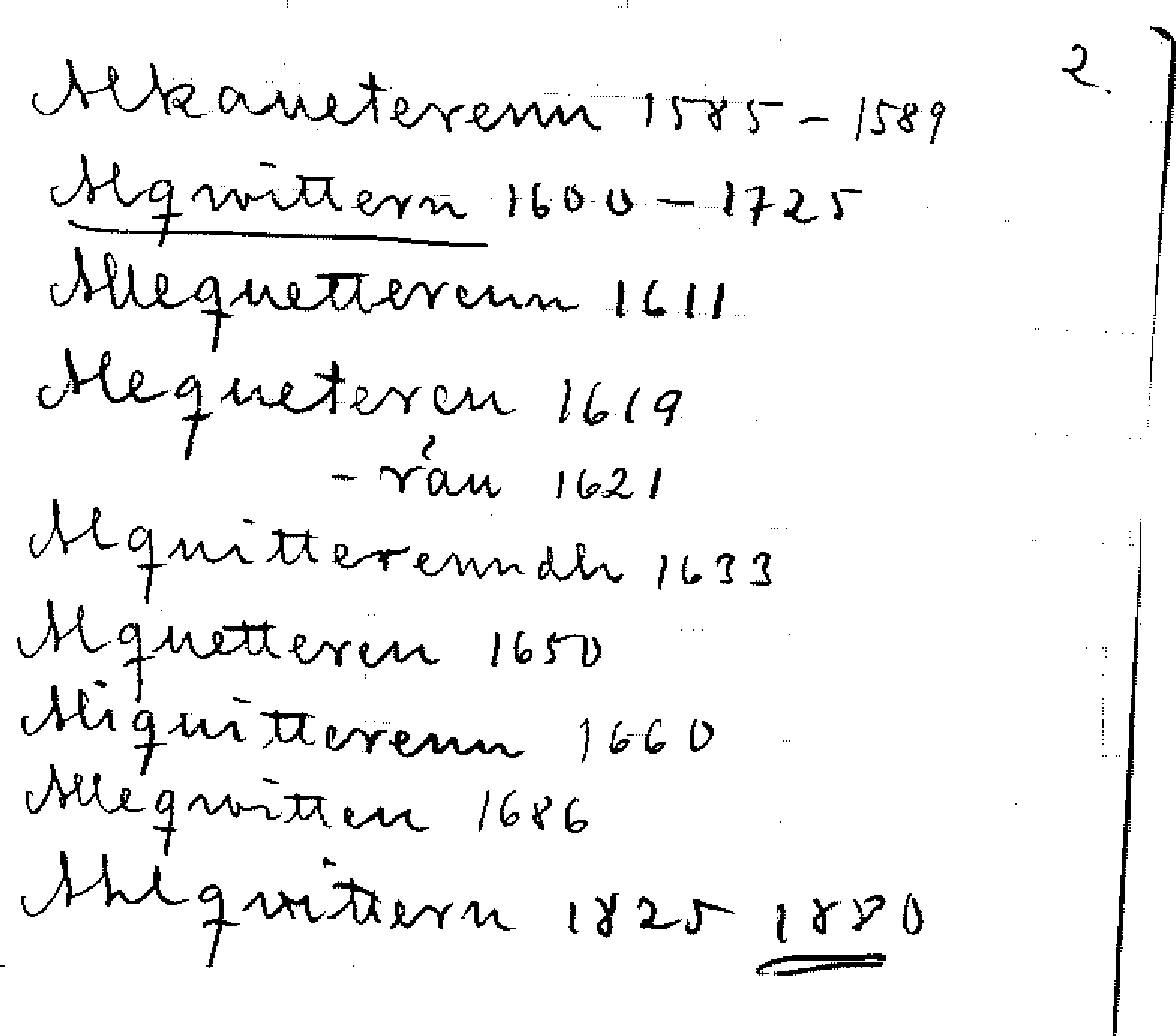 2.
Alkaueterenn 1585 - 1589
Alqwittern 1600 - 1725
Allequetterenn 1611
Alequeteren 1619
- rån 1621
Alquitterenndh 1633
Alquetteren 1650
Aliquitterenn 1660
Alleqwitten 1686
Ahlqwittern 1825 1880